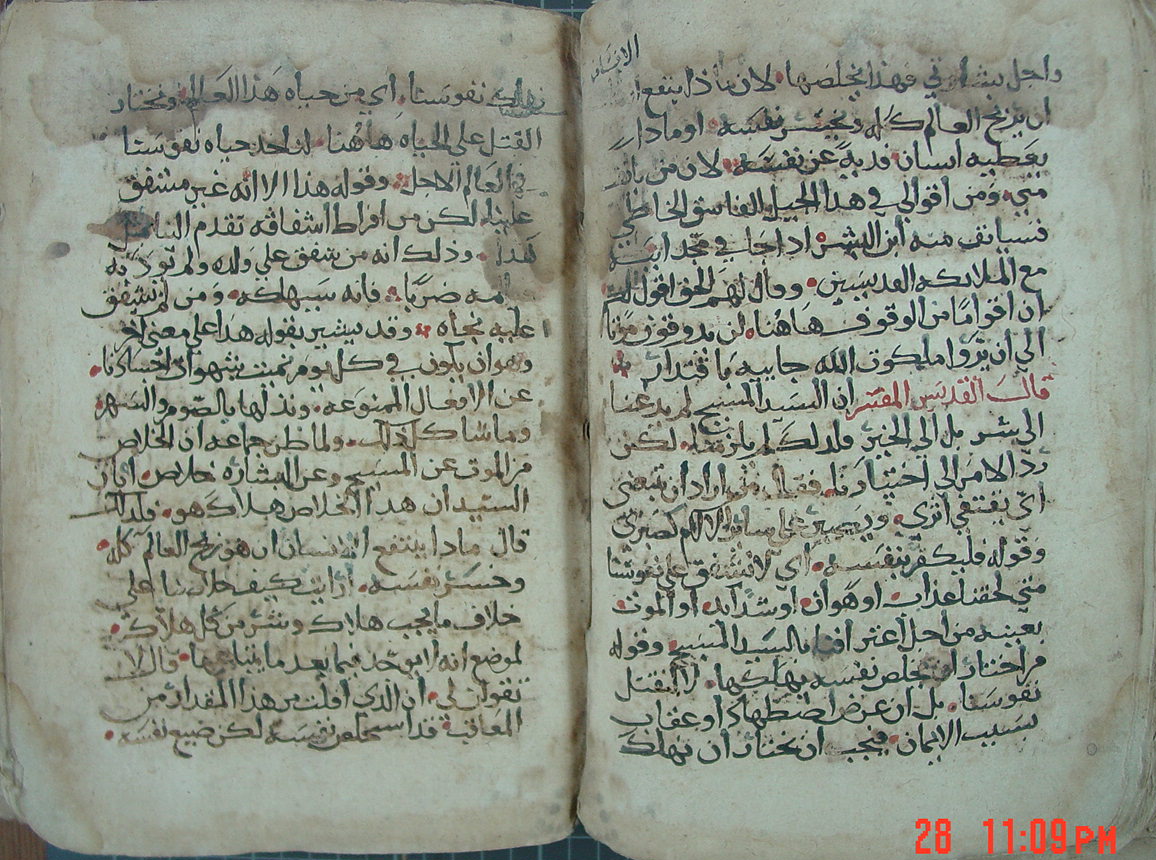 الانسان
واجل بشارتي فهذا يخلصها. لان ماذا ينفع
ان يربح العالم كله ويخسر نفسه. او ماذا
يعطيه انسان فدية عن نفسه. لان من يانف
مني ومن اقوالي في هذا الجيل الفاسق الخاطي
فسيانف منه ابن البشر اذا جا في مجد ابيه
مع الملايكه القديسين. وقال لهم الحق اقول لكم
ان اقواما من الوقوف هاهنا. لن يدوقون موتا
الي ان يروا ملكوت الله جاييه باقتدار
قال القديس المفسر ان السيد المسيح لم يدعنا
الي شر بل الي الخير ولدلك لم يلزمنا. لكن
رد الامر الي اختيارنا. فقال من اراد ان يتبعني
اي يقتفي اثري. ويصبر علي ساير الالام كصبري
وقوله فليكفر بنفسه. اي لا نشفق علي نفوسنا
متي لحقنا عذاب او هوان او شدايد او الموت
بعينه من اجل اعترافنا بالسيد المسيح وقوله
من اختار ان يخلص نفسه يهلكها. لا لنقتل
نفوسنا. بل ان عرض اضطهاد او عقاب
بسبب الايمان. فيجب ان نختار ان نهلك
نهلك نفوسنا. اي من حياه هذا العالم. ونختار
القتل علي الحياه هاهنا لناخد حياه نفوسنا
في العالم الاجل. وقوله هذا الا انه غير مشفق
علينا. لكن من افراط اشفاقه تقدم الينا بمثل
هذا. وذلك انه من شفق علي ولده ولم يودبه
ضربا. فانه سيهلكه. ومن لم يشفق
عليه نجاه. وقد يشير بقوله هدا علي معني اخر
وهو ان يكون في كل يوم نميت شهوات اجسادنا.
عن الافعال الممنوعه. ونذلها بالصوم والسهر
وما شاكل ذلك. ولما ظن جماعه ان الخلاص
من الموت عن المسيح وعن البشاره خلاص. ابان
السيد ان هدا الخلاص هلاك هو. فلدلك
قال مادا ينتفع الانسان ان هو ربح العالم كله.
وخسر نفسه. ارايت كيف خلاصنا علي
خلاف ما يجب هلاك وشر من كل هلاك.
لموضع انه لا يوجد فيما بعد ما يبتاعها. قال لا
تقولن لي. ان الذي افلت من هذا المقدار من
المعاقبه قد استخلص نفسه لكن ضيع نفسه.
28 11:09 PM